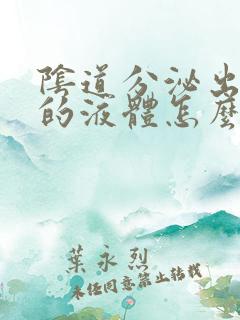 陰道分泌出
的液體怎麼
葉永烈
未經同意禁止轉載